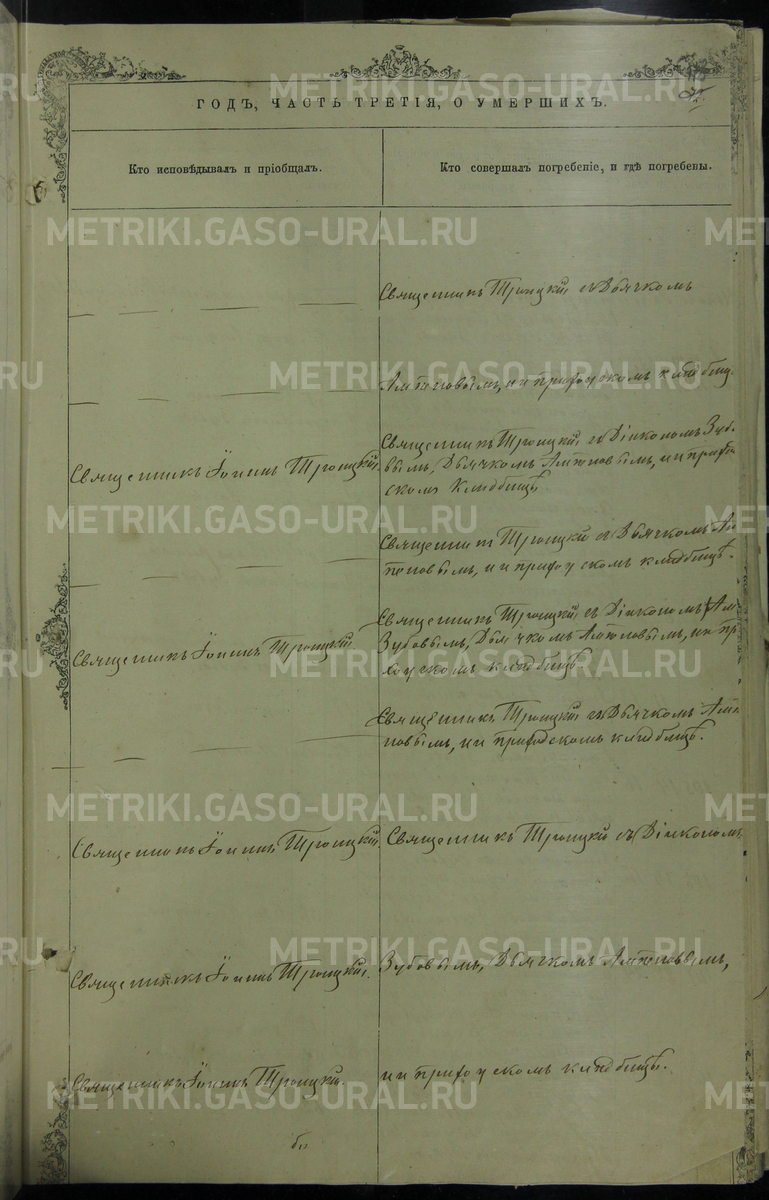 ГОДЪ, ЧАСТЬ ТРЕТІЯ, О УМЕРШИХЪ.
Кто исповѣдывалъ и пріобщалъ.
Кто совершалъ погребеніе, и гдѣ погребены.
Священникъ Троицкій съ Дьячкомъ
на приходскомъ кладбищѣ.
Священникъ Іоаннъ Троицкій.
Священникъ Троицкій съ Діакономъ Зубо-
вымъ, Дьячкомъ на прихо
скомъ Кладбищѣ
Священникъ Троицкій съ Дьячкомъ
на приходскомъ кладбищѣ.
Священникъ Іоаннъ Троицкій
Священникъ Троицкій съ Діакономъ
Зубовымъ, Дьячкомъ на при
ходскомъ кладбищѣ.
Священникъ Троицкій съ Дьячкомъ
на приходскомъ кладбищѣ.
Священникъ Іоаннъ Троицкій.
Священникъ Троицкій съ Діакономъ
Священникъ Іоаннъ Троицкій.
Зубовымъ, Дьячкомъ
Священникъ Іоаннъ Троицкій.
на приходскомъ кладбищѣ.
METRIKI.GASO-URAL.RU